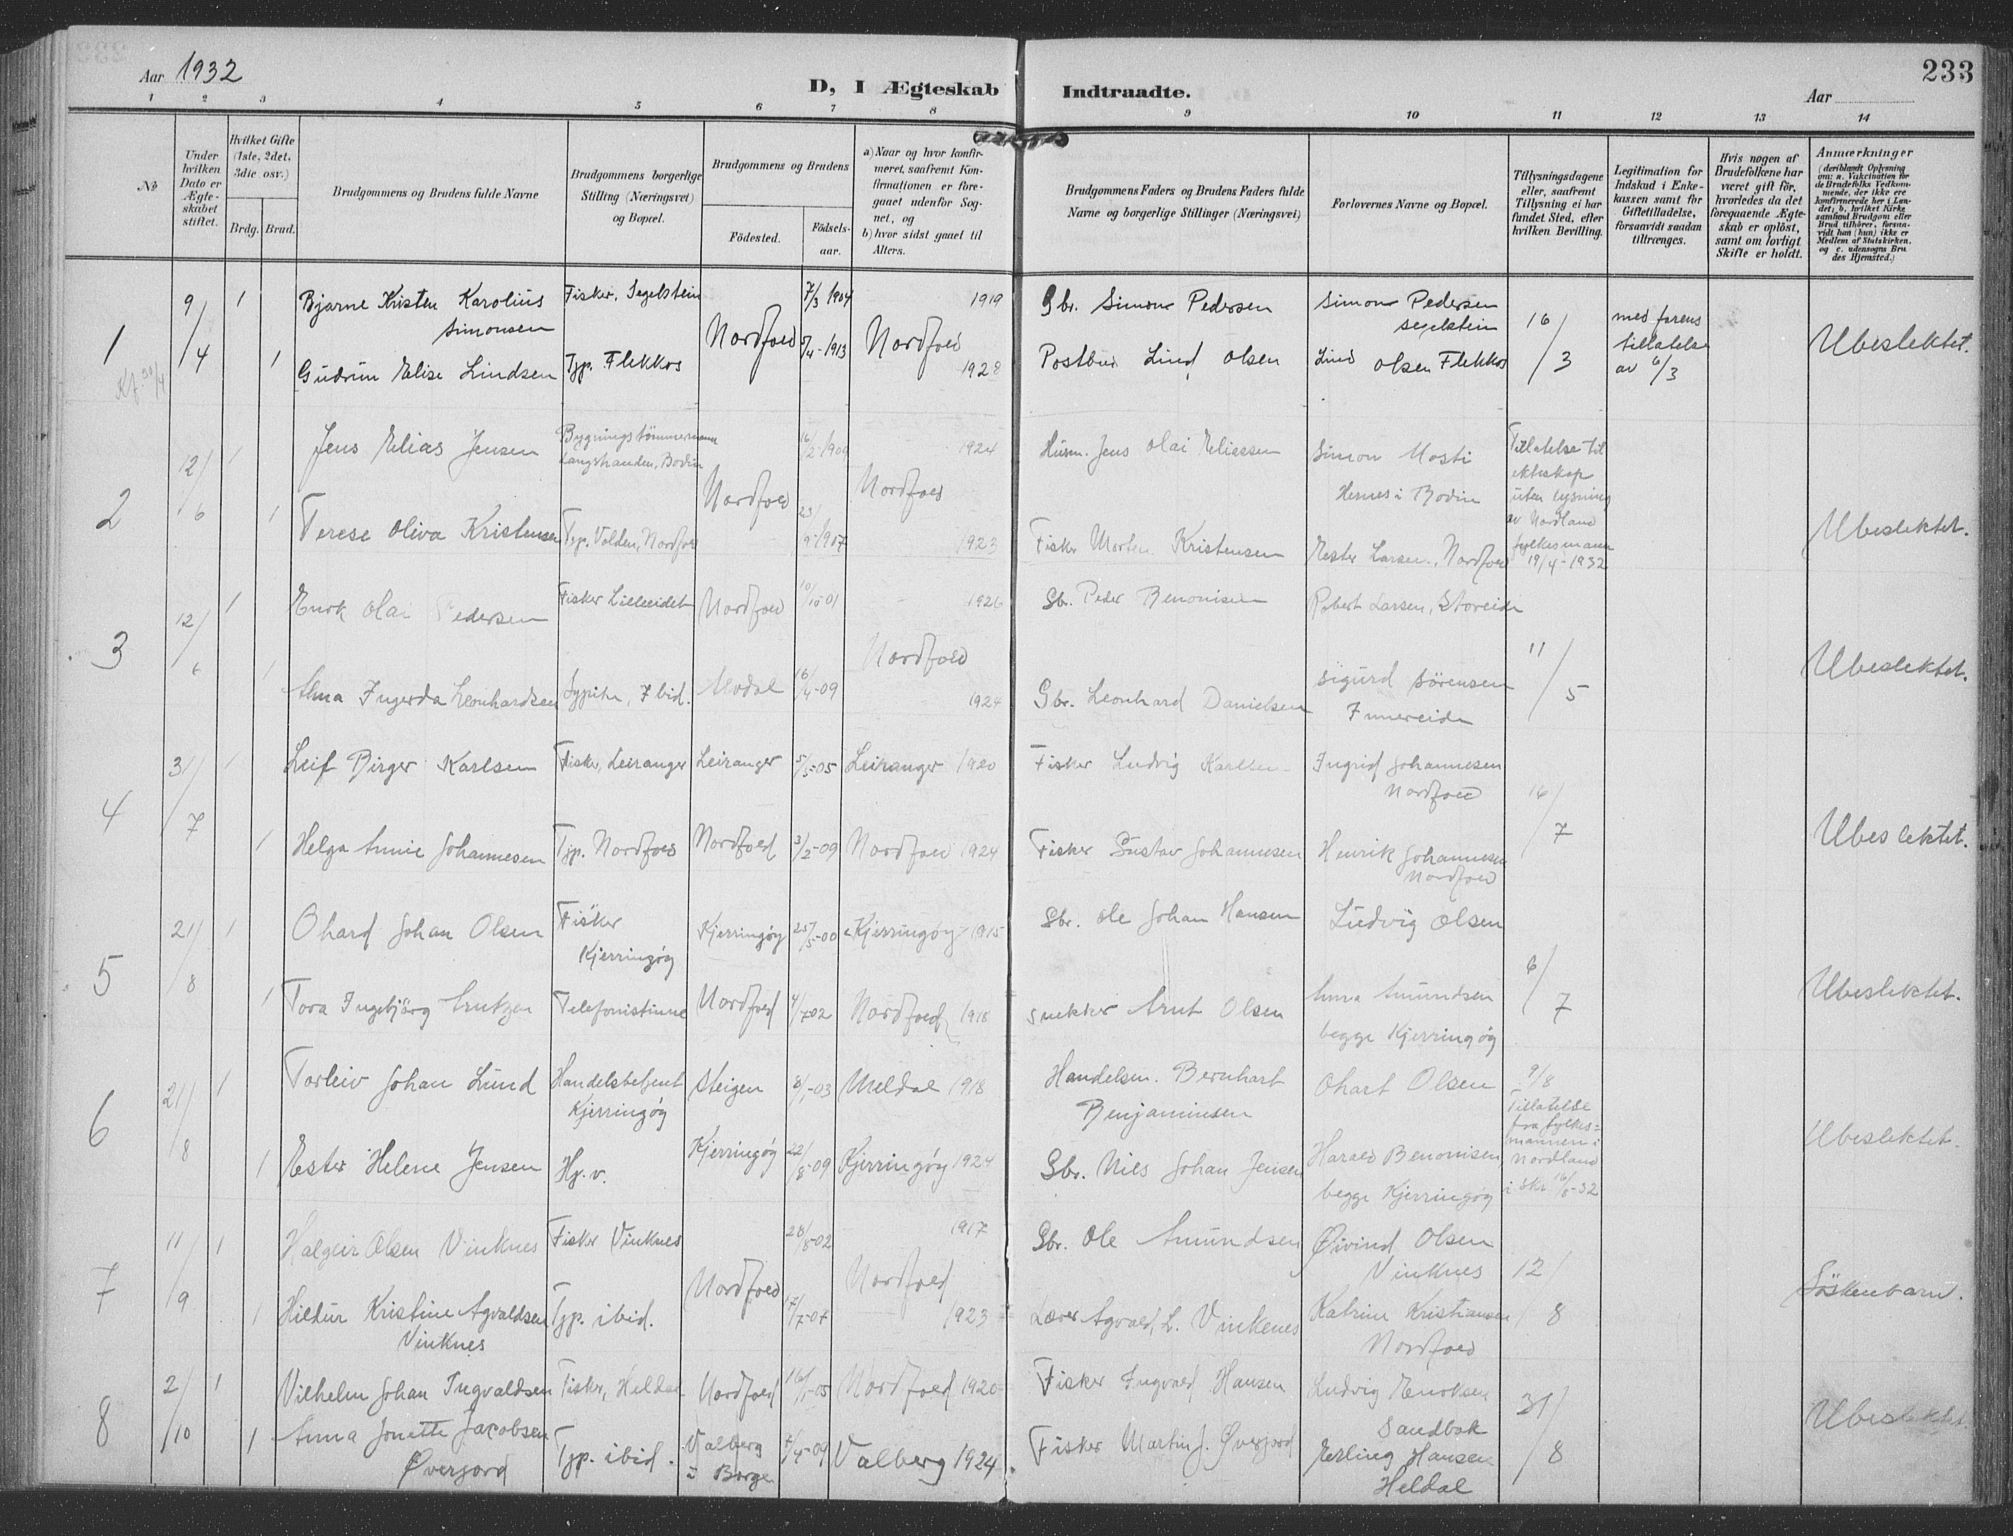 Aar 1932
D, I Ægteskab Indtraadte.
233
Aar
1 2 3 4 5 6 7 8 9 10 11 12 13 14
No
Under hvilken Dato er Ægteskabet stiftet.
Hvilket Gifte (1ste, 2det, 3die osv.)
Brdg. Brud.
Brudgommens og Brudens fulde Navne
Brudgommens borgerlige Stilling (Næringsvei) og Bopæl.
Brudgommens og Brudens
Fødested.
Fødselsaar.
a) Naar og hvor konfirmeret, saafremt Konfirmationen er foregaaet udenfor Sognet, og
b) hvor sidst gaaet til Alters.
Brudgommens Faders og Brudens Faders fulde Navne og borgerlige Stillinger (Næringsvei)
Forlovernes Navne og Bopæl.
Tillysningsdagene eller, saafremt Tillysning ei har fundet Sted, efter hvilken Bevilling.
Legitimation for Indskud i Enkekassen samt for Giftetilladelse, forsaavidt saadan tiltrænges.
Hvis nogen af Brudefolkene har været gift før, hvorledes da det foregaaende Ægteskab er opløst, samt om lovligt Skifte er holdt.
Anmærkninger
(deriblandt Oplysning om: a. Vakcination for de Brudefolks Vedkommende, der ikke ere konfirmerede her i Landet; b. hvilket Kirkesamfund Brudgom eller Brud tilhører, forsaavidt han (hun) ikke er Medlem af Statskirken, og c. udensogns Brudes Hjemsted.)
1 9/4 1 Bjarne Kristen Karolius Simonsen Fisker, Segelstein Nordfold 7/3 1904 Nordfold 1919 Gbr. Simon Pedersen Simon Pedersen Segelstein 16/3 med farens tillatelse av 6/3 Ubeslektet.
1 Gudrun Elise Lindsen Tjp. Flekkos 5/4-1913 1928 Postbud Lind Olsen Lind Olsen Flekkos
2 12/6 1 Jens Elias Jensen Bygningstømmermann Langstranden, Bodin Nordfold 16/2-1909 Nordfold 1924 Husm. Jens Olai Eliassen Simon Mosti Hernes i Bodin Tillatelse til ekteskap uten lysning av Nordland fylkesmann 19/4-1932 Ubeslektet.
1 Terese Oliva Kristensen Tjp. Volden, Nordfold 1907 1923 Fisker Morten Kristensen Ester Larsen, Nordfold
3 12/6 1 Enok Olai Pedersen Fisker Lilleeidet Nordfold 10/10-01 Nordfold 1926 Gbr. Peder Benonisen Robert Larsen, Storeide 11/5 Ubeslektet.
1 Alma Ingerda Leonhardsen Sypike, Ibid. 16/4-09 1924 Gbr. Leonhard Danielsen Sigurd Sørensen
4 31/7 1 Leif Birger Karlsen Fisker, Leiranger Leiranger 5/5-05 Leiranger 1920 Fisker Ludvig Karlsen Ingrid Johannesen Nordfold 16/7 Ubeslektet.
1 Helga Annie Johannesen Tjp. Nordfold Nordfold 3/2-09 Nordfold 1924 Fisker Gustav Johannesen Henrik Johannesen Nordfold
5 21/8 1 Ohard Johan Olsen Fisker Kjerringøy Kjerringøy 25/5-00 Kjerringøy 1915 Gbr. Ole Johan Hansen Ludvig Olsen 6/7 Ubeslektet.
1 Tora Ingebjørg Arntzen Telefonistinne Nordfold 4/7-02 Nordfold 1918 Snekker Arnt Olsen Anna Amundsen begge Kjerringøy
6 21/8 1 Torleiv Johan Lund Handelsbetjent Kjerringøy Steigen 8/1-03 Meldal 1918 Handelsm. Bernhart Benjaminsen Ohart Olsen 9/8 Tillatelse fra fylkesmannen i Nordland i skr 16/8-32 Ubeslektet.
1 Ester Helene Jensen Hj.v. Kjerringøy 22/8-09 Kjerringøy 1924 Gbr. Nils Johan Jensen Harald Benonisen begge Kjerringøy
7 11/9 1 Halgeir Olsen Vinknes Fisker Vinknes Nordfold 28/8-02 Nordfold 1917 Gbr. Ole Amundsen Øivind Olsen Vinknes 12/8 Søskenbarn.
1 Hildur Kristine Agvaldsen Vinknes Tjp. ibid. 17/7-07 1923 Lærer Agvald L. Vinkenes Katrine Kristiansen Nordfold
8 2/10 1 Vilhelm Johan Ingvaldsen Fisker, Heldal Nordfold 16/1-05 Nordfold 1920 Fisker Ingvald Hansen Ludvig Enoksen Sandbak 31/8 Ubeslektet.
1 Anna Jonette Jacobsen Øverjord Tjp. ibid. Valberg i Borge 7/4-09 Valberg 1924. Fisker Martin J. Øverjord Erling Hansen Heldal